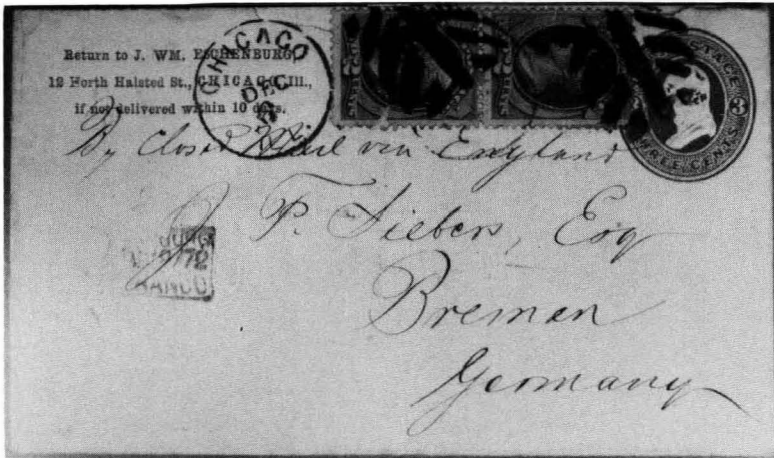 Return to J. WM. ESCHENBURG,
12 North Halsted St., CHICAGO, Ill.,
if not delivered within 10 days.
CHICAGO
DEC
ILL.
POSTAGE
3
THREE CENTS
By Closed Mail via England
J. P. Siebers, Esq
Bremen
Germany
72
FRANCO